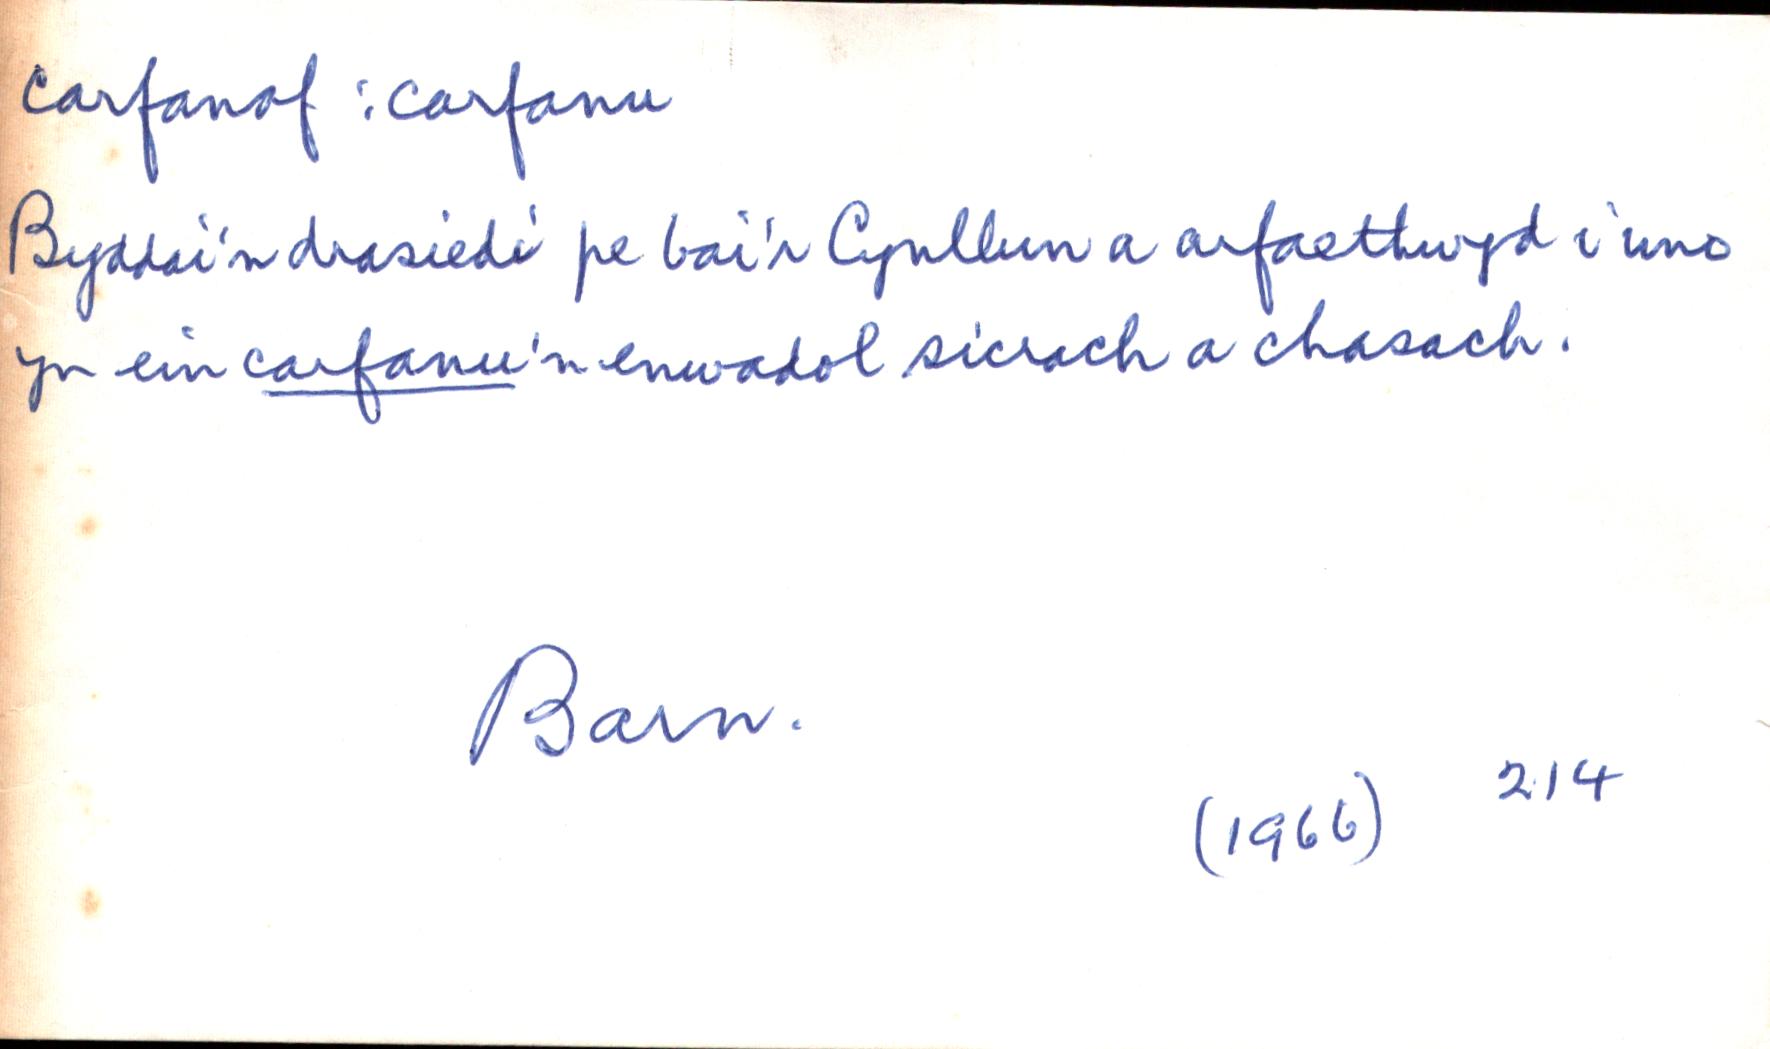 carfanaf : carfanu
Byddai'n drasiedi pe bai'r Cynllun a arfaethwyd i uno
yn ein carfanu'n enwadol sicrach a chasach.
Barn.
(1966) 214